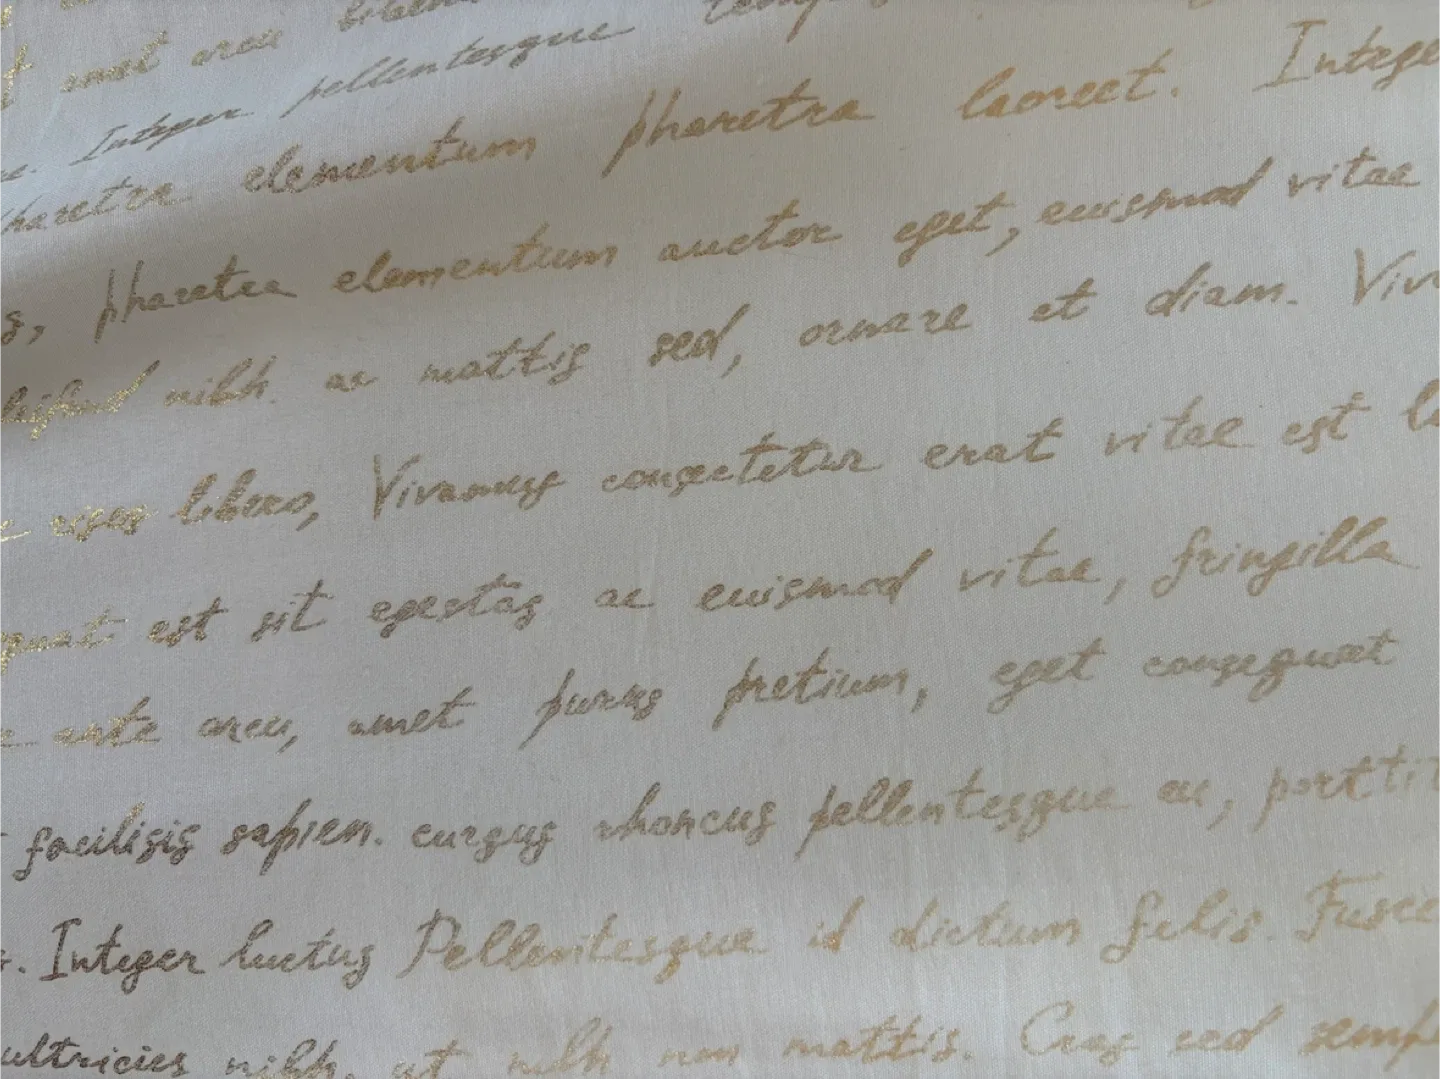 amet arcu
Integer pellentesque
pharetra elementum pharetra laoreet. Intege
s, pharetra elementum auctor eget, euismod vitae
eleifend nibh. ac mattis sed, ornare et diam. Viv
risus libero, Vivamus consectetur erat vitae est l
quat est sit egestas ac euismod vitae, fringilla
ante arcu, amet purus pretium, eget consequat
facilisis sapien. cursus rhoncus pellentesque eu, porttit
s. Integer luctus Pellentesque id dictum felis. Fusce
ultricies nibh, ut nulh non mattis. Cras sed semp